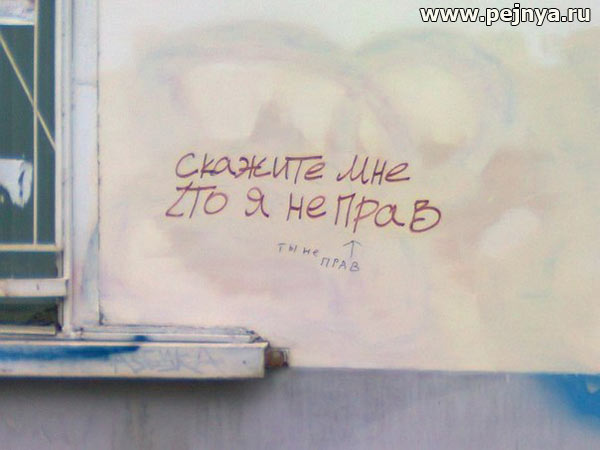 www.pejnya.ru
скажите мне
что я не прав
ты не
прав